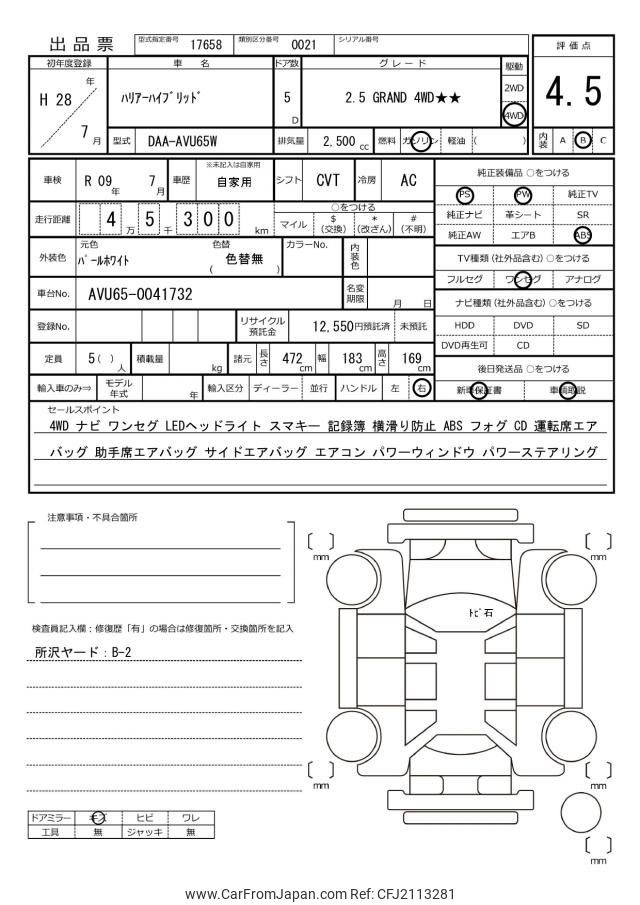 出品票 型式指定番号 17658 類別区分番号 0021 シリアル番号
評価点
4.5
初年度登録 車名 ドア数 グレード 駆動
H 28 年 7 月 ﾊﾘｱｰﾊｲﾌﾞﾘｯﾄﾞ 5 D 2.5 GRAND 4WD★★ 2WD 4WD
型式 DAA-AVU65W 排気量 2,500 cc 燃料 ガソリン 軽油 ( ) 内装 A B C
車検 R 09 年 7 月 車歴 ※未記入は自家用 自家用 シフト CVT 冷房 AC
純正装備品 ○をつける
PS PW 純正TV
純正ナビ 革シート SR
純正AW エアB ABS
走行距離 4 5 万 千 3 0 0 km ○をつける
マイル $ (交換) * (改ざん) # (不明)
外装色 元色 ﾊﾟｰﾙﾎﾜｲﾄ 色替 ( 色替無 ) カラーNo. 内装色
TV種類 (社外品含む) ○をつける
フルセグ ワンセグ アナログ
車台No. AVU65-0041732 名変期限 月 日
ナビ種類 (社外品含む) ○をつける
HDD DVD SD
DVD再生可 CD
登録No. リサイクル預託金 12,550円預託済 未預託
定員 5( ) 人 積載量 kg 諸元 長さ 472 cm 幅 183 cm 高さ 169 cm
後日発送品 ○をつける
新車保証書 車輌取説
輸入車のみ⇒ モデル年式 年 輸入区分 ディーラー 並行 ハンドル 左 右
セールスポイント
4WD ナビ ワンセグ LEDヘッドライト スマキー 記録簿 横滑り防止 ABS フォグ CD 運転席エア
バッグ 助手席エアバッグ サイドエアバッグ エアコン パワーウィンドウ パワーステアリング
注意事項・不具合箇所
[ ] mm
[ ] mm
ﾄﾋﾞ石
検査員記入欄：修復歴「有」の場合は修復箇所・交換箇所を記入
所沢ヤード：B-2
[ ] mm
[ ] mm
[ ] mm
ドアミラー キズ ヒビ ワレ
工具 無 ジャッキ 無
www.CarFromJapan.com Ref: CFJ2113281